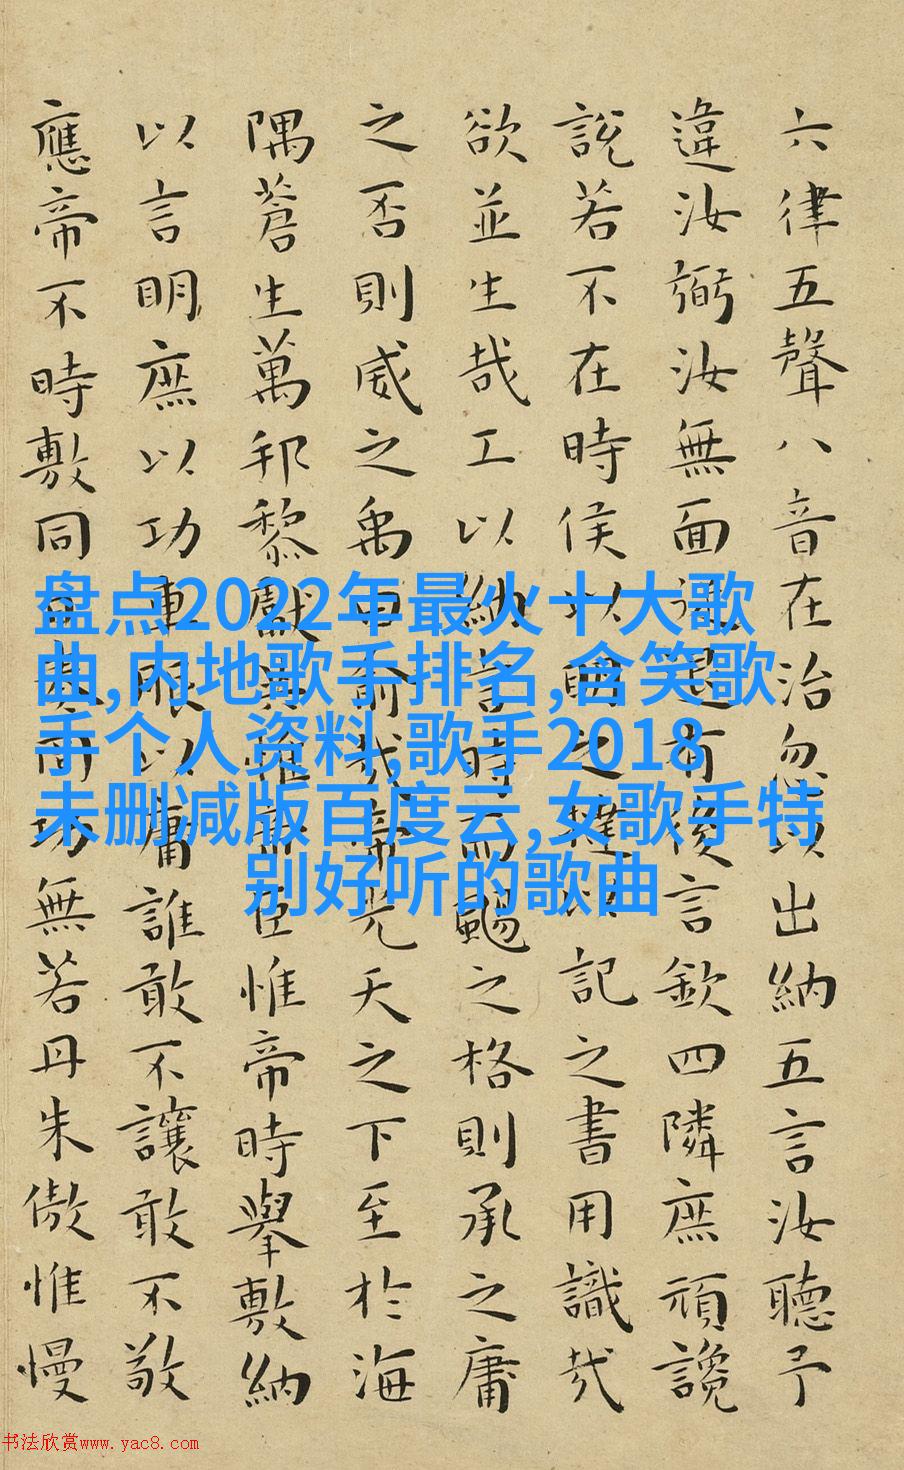 六律五聲八音在治忽以出納五言汝聽予
違汝弼汝無面從退有後言欽四隣庶頑讒
說若不在時侯以明之撻以記之書用識哉
欲並生哉工以納言時而颺之格則承之庸
之否則威之禹曰俞哉帝光天之下至於海
隅蒼生萬邦黎獻共惟帝臣惟帝時舉敷納
以言明庶以功車服以庸誰敢不讓敢不敬
應帝不時敷同日奏罔功無若丹朱傲惟慢
盘点2022年最火十大歌
曲,内地歌手排名,含笑歌
手个人资料,歌手2018
未删减版百度云,女歌手特
别好听的歌曲
书法欣赏www.yac8.com